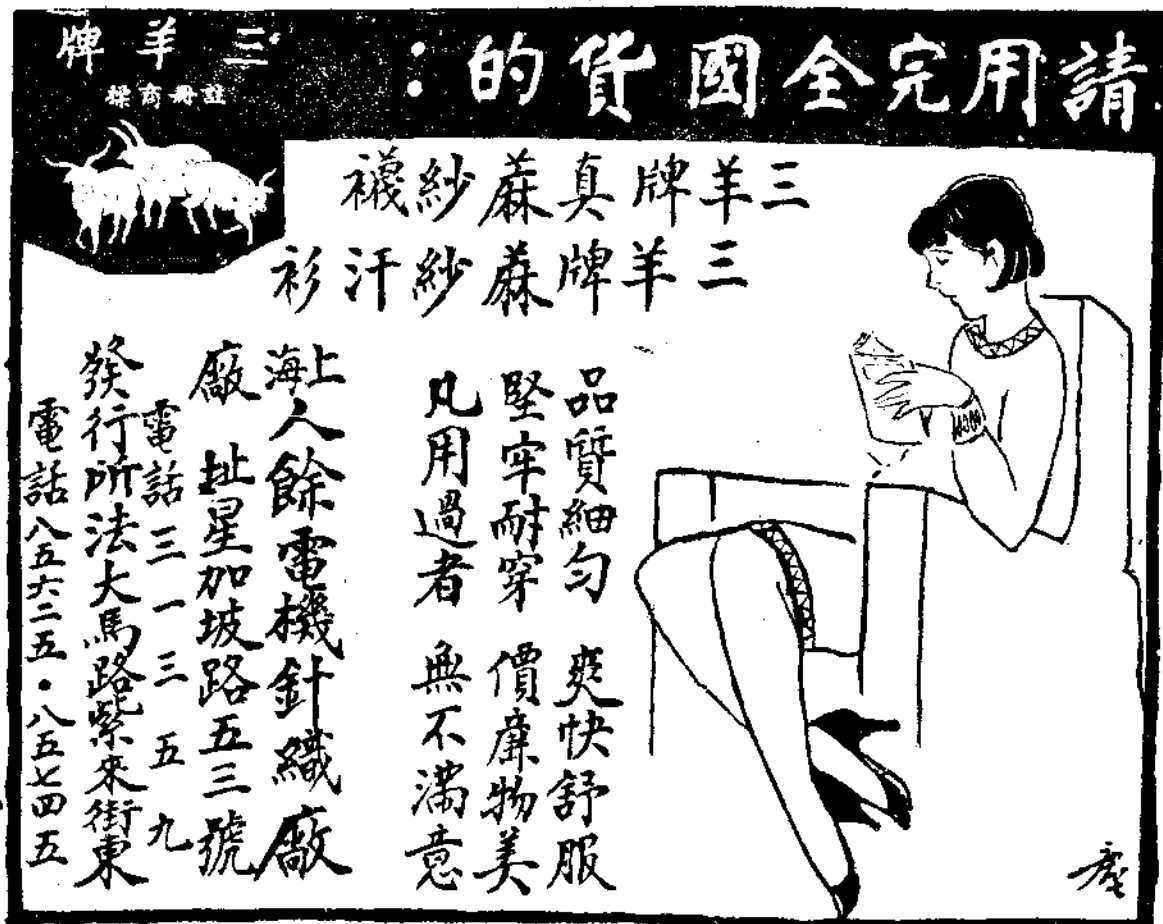 請用完全國貨的：
三羊牌
註冊商標
三羊牌真蔴紗襪
三羊牌蔴紗汗衫
品質細勻　爽快舒服
堅牢耐穿　價廉物美
凡用過者　無不滿意
上海人餘電機針織廠
廠　址星加坡路五三號
電話三一三五九
發行所法大馬路紫來街東
電話八五六二五・八五七四五